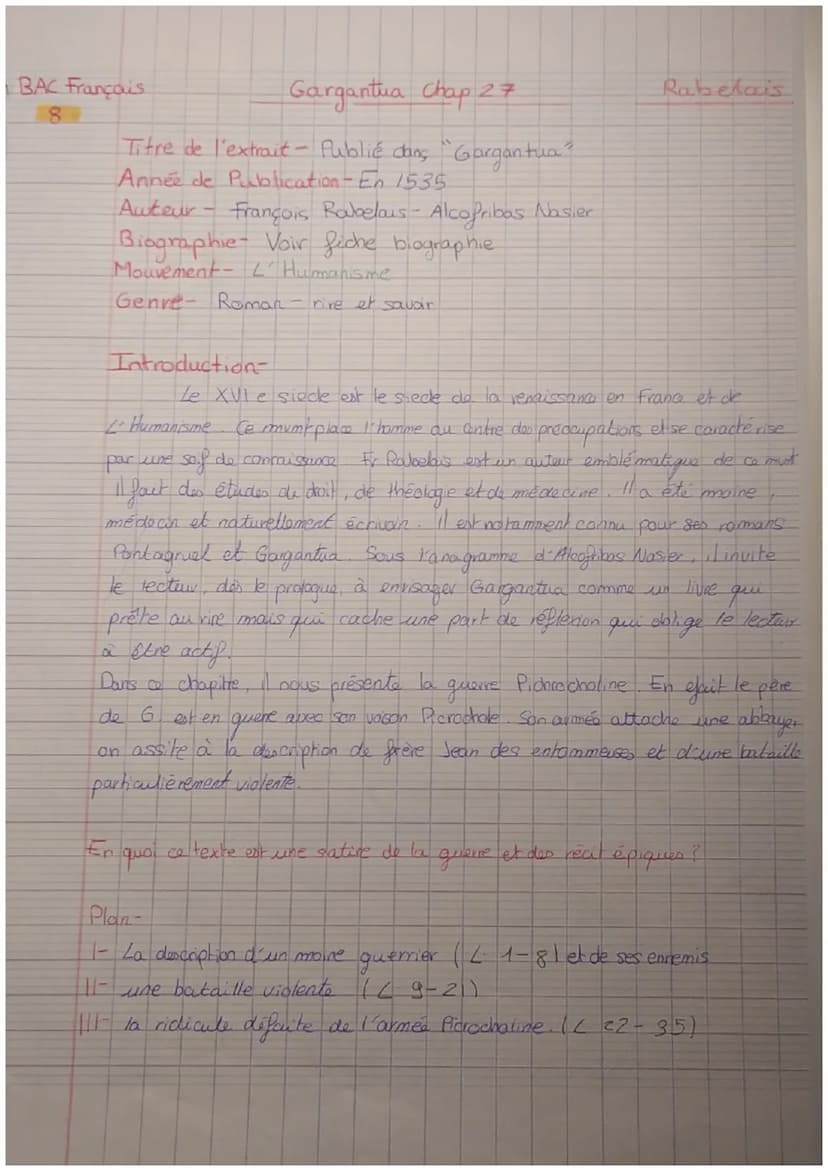 BAC Français
Gargantua Chap 27
Rabelais
8
Titre de l'extrait - Publié dans "Gargantua"
Année de Publication - En 1535
Auteur - François Rabelais - Alcofribas Nasier
Biographie - Voir fiche biographie
Mouvement - L'Humanisme
Genre - Roman - rire et savoir
Introduction -
Le XVI e siècle est le siècle de la renaissance en France et de
L'Humanisme. Ce mvmt place l'homme au centre des préocupations et se caractérise
par une soif de connaissance. Fr Rabelais est un auteur emblématique de ce mvt
il fait des études de droit, de théologie et de médecine. Il a été moine,
médecin et naturellement écrivain. Il est notamment connu pour ses romans
Pantagruel et Gargantua. Sous l'anagramme d'Alcofribas Nasier, il invite
le lecteur, dès le prologue, à envisager Gargantua comme un livre qui
prête au rire mais qui cache une part de réflexion qui oblige le lecteur
à être actif.
Dans ce chapitre, il nous présente la guerre Pichrocholine. En efait le père
de G est en guerre avec son voisin Picrochole. Son armée attache une abbaye,
on assite à la description de frère Jean des entommeuses et d'une bataille
particulièrement violente.
En quoi ce texte est une satire de la guerre et des récit épiques ?
Plan -
I- La description d'un moine guerrier (L 1-8) et de ses ennemis
II- une bataille violente (L 9-21)
III- la ridicule défaite de l'armée Picrocholine. (L 22-35)